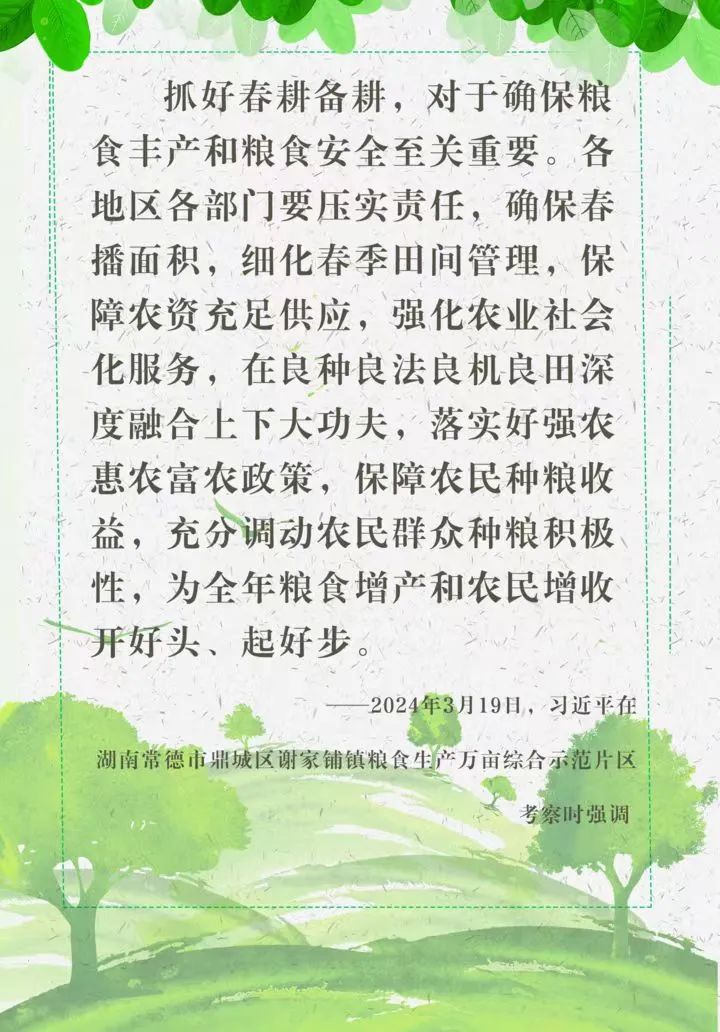 抓好春耕备耕，对于确保粮
食丰产和粮食安全至关重要。各
地区各部门要压实责任，确保春
播面积，细化春季田间管理，保
障农资充足供应，强化农业社会
化服务，在良种良法良机良田深
度融合上下大功夫，落实好强农
惠农富农政策，保障农民种粮收
益，充分调动农民群众种粮积极
性，为全年粮食增产和农民增收
开好头、起好步。
——2024年3月19日，习近平在
湖南常德市鼎城区谢家铺镇粮食生产万亩综合示范片区
考察时强调